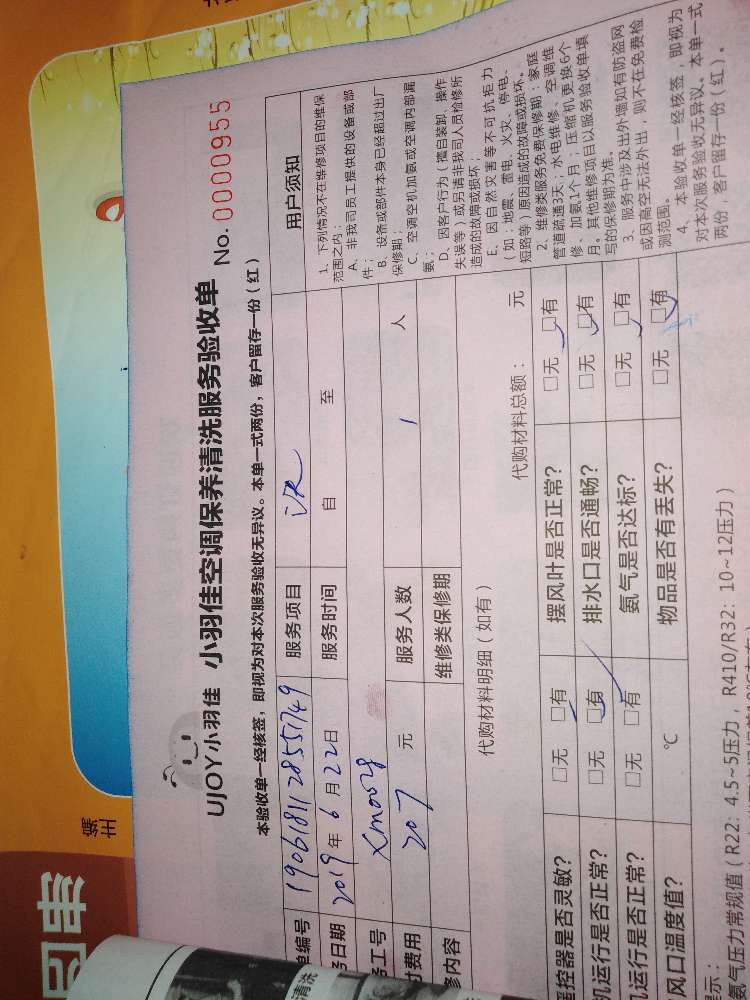 UJOY小羽佳 小羽佳空调保养清洗服务验收单 No. 0000955
本验收单一经核签，即视为对本次服务验收无异议。本单一式两份，客户留存一份（红）
单编号 服务项目 用户须知
日期 2019年6月22日 服务时间 自 至
工号 Xm0028
费用 207 元 服务人数 1 人
修内容 维修类保修期
代购材料明细（如有） 代购材料总额： 元
控器是否灵敏？ □无 □有 摆风叶是否正常？ □无 □有
机运行是否正常？ □无 □有 排水口是否通畅？ □无 □有
机运行是否正常？ □无 □有 氨气是否达标？ □无 □有
风口温度值？ ℃ 物品是否有丢失？ □无 □有
示：
氨气压力常规值（R22：4.5~5压力，R410/R32：10~12压力）
1、下列情况不在维修项目的维保
范围之内：
A、非我司员工提供的设备或部
件；
B、设备或部件本身已经超过出厂
保修期；
C、空调空机加氨或空调内部漏
氨；
D、因客户行为（擅自装卸、操作
失误等）或另请非我司人员检修所
造成的故障或损坏；
E、因自然灾害等不可抗拒力
（如：地震、雷电、火灾、停电、
短路等）原因造成的故障或损坏。
2、维修类服务免费保修期：家庭
管道疏通3天；水电维修、空调维
修、加氨1个月；压缩机更换6个
月。其他维修项目以服务验收单填
写的保修期为准。
3、服务中涉及出外墙如有防盗网
或因高空无法外出，则不在免费检
测范围。
4、本验收单一经核签，即视为
对本次服务验收无异议。本单一式
两份，客户留存一份（红）。
清洗